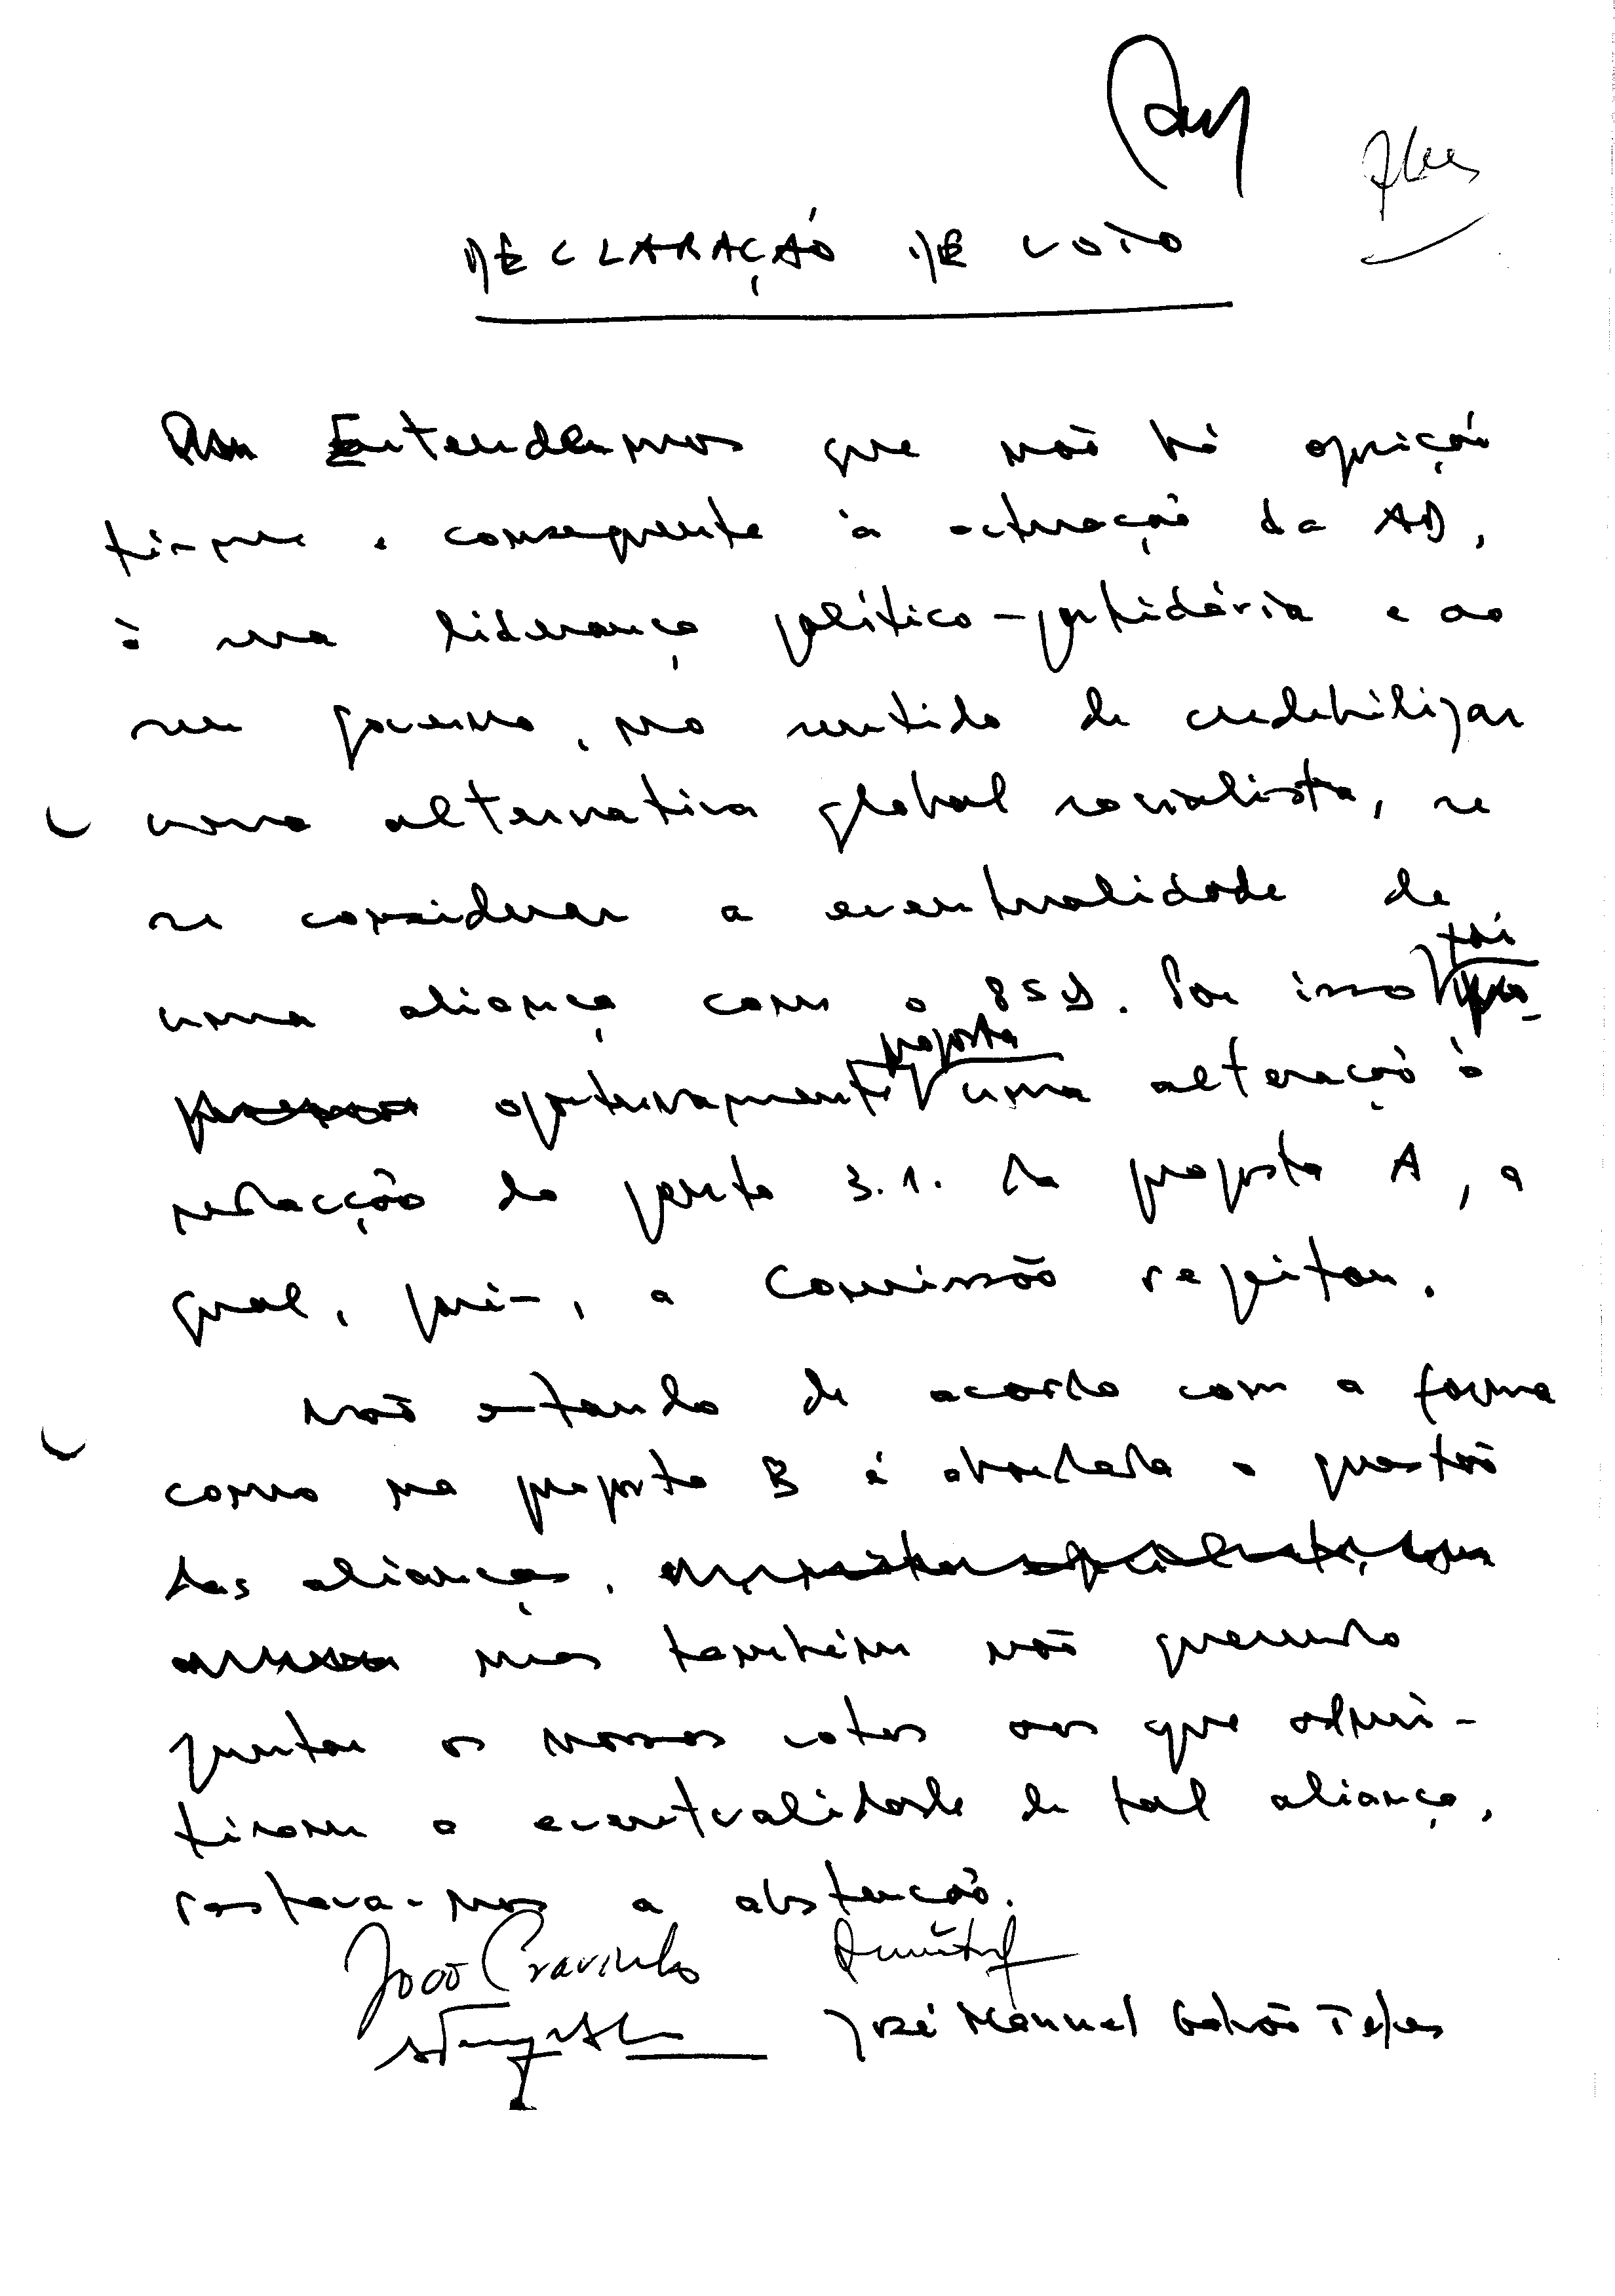 DECLARAÇÃO DE VOTO
Entendemos que não há oposição
firme e consequente à actuação da AD,
à sua liderança político-partidária e ao
seu governo, no sentido de credebilizar
uma alternativa global socialista, se
se considerar a eventualidade de
uma aliança com o PSD. Por isso foi
oportunamente proposta uma alteração à
redacção do ponto 3.1. da proposta A, a
qual, porém, a Comissão rejeitou.
Não estando de acordo com a forma
como na proposta B é abordada a questão
das alianças,
mas também não querendo
juntar os nossos votos aos que admi-
tiram a eventualidade de tal aliança,
restava-nos a abstenção.
João Cravinho
José Manuel Galvão Teles